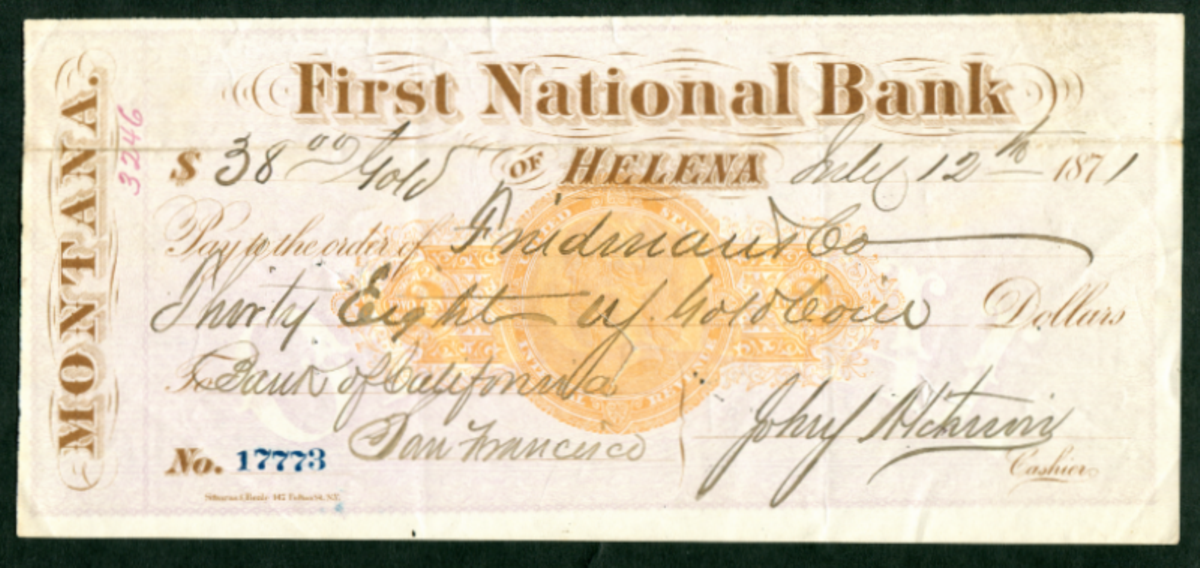 MONTANA.
3246
First National Bank
$ 38 00 Gold OF HELENA July 12th 1871
Pay to the order of Fridman & Co
Thirty Eight Gold Coin Dollars
To Bank of California
San Francisco
No. 17773
John
Cashier